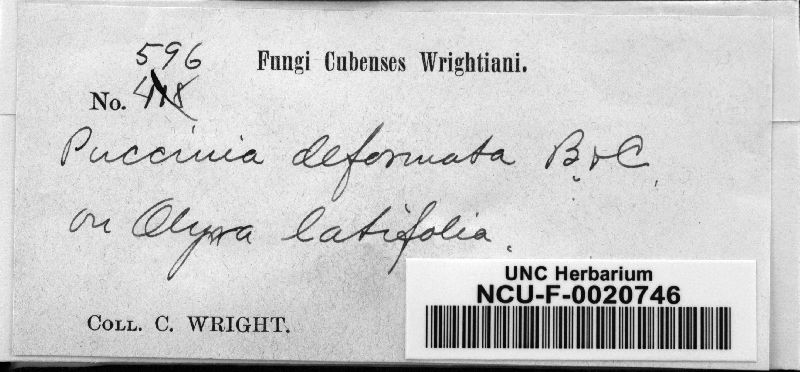 596
Fungi Cubenses Wrightiani.
No. 418
Puccinia deformata B. & C.
on Olyra latifolia.
UNC Herbarium
NCU-F-0020746
COLL. C. WRIGHT.